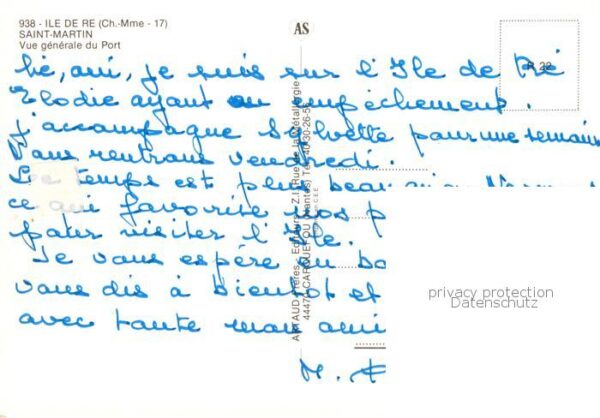 938 - ILE DE RE (Ch.-Mme - 17)
SAINT-MARTIN
Vue générale du Port
AS
R 22
hé, oui, je suis sur l'Ile de Ré
Elodie ayant eu empêchement.
j'accompagne Sylvette pour une semain
Nous rentrons vendredi.
Le temps est plus beau
ce qui favorise nos p
pour visiter l'Ile.
Je vous espère en bo
vous dis à bientôt et
avec toute mon ami
M.
ARTAUD Frères - Editeurs - Z.I. Rue de la Métallurgie
44470 CARQUEFOU (Nantes) Tél. 40-30-26-55
privacy protection
Datenschutz